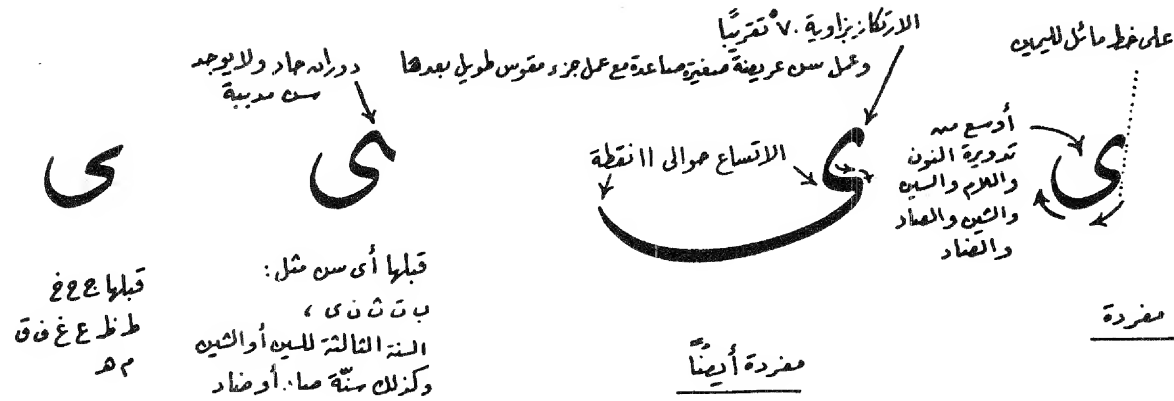 على خط مائل لليمين
ى
أوسع من
تدويرة النون
واللام والسين
والشين والصاد
والضاد
مفردة
الارتكاز بزاوية ٧٠° تقريبًا
وعمل سن عريضة صغيرة صاعدة مع عمل جزء مقوس طويل بعدها
الاتساع حوالى ١١ نقطة
ى
مفردة أيضًا
دوران حاد ولا يوجد
سن مدببة
ى
قبلها أى سن مثل:
ب ت ث ن ى ،
السنة الثالثة للسين أو الشين
وكذلك سنّة صاد أو ضاد
ى
قبلها ج ح خ
ط ظ ع غ ف ق
م هـ